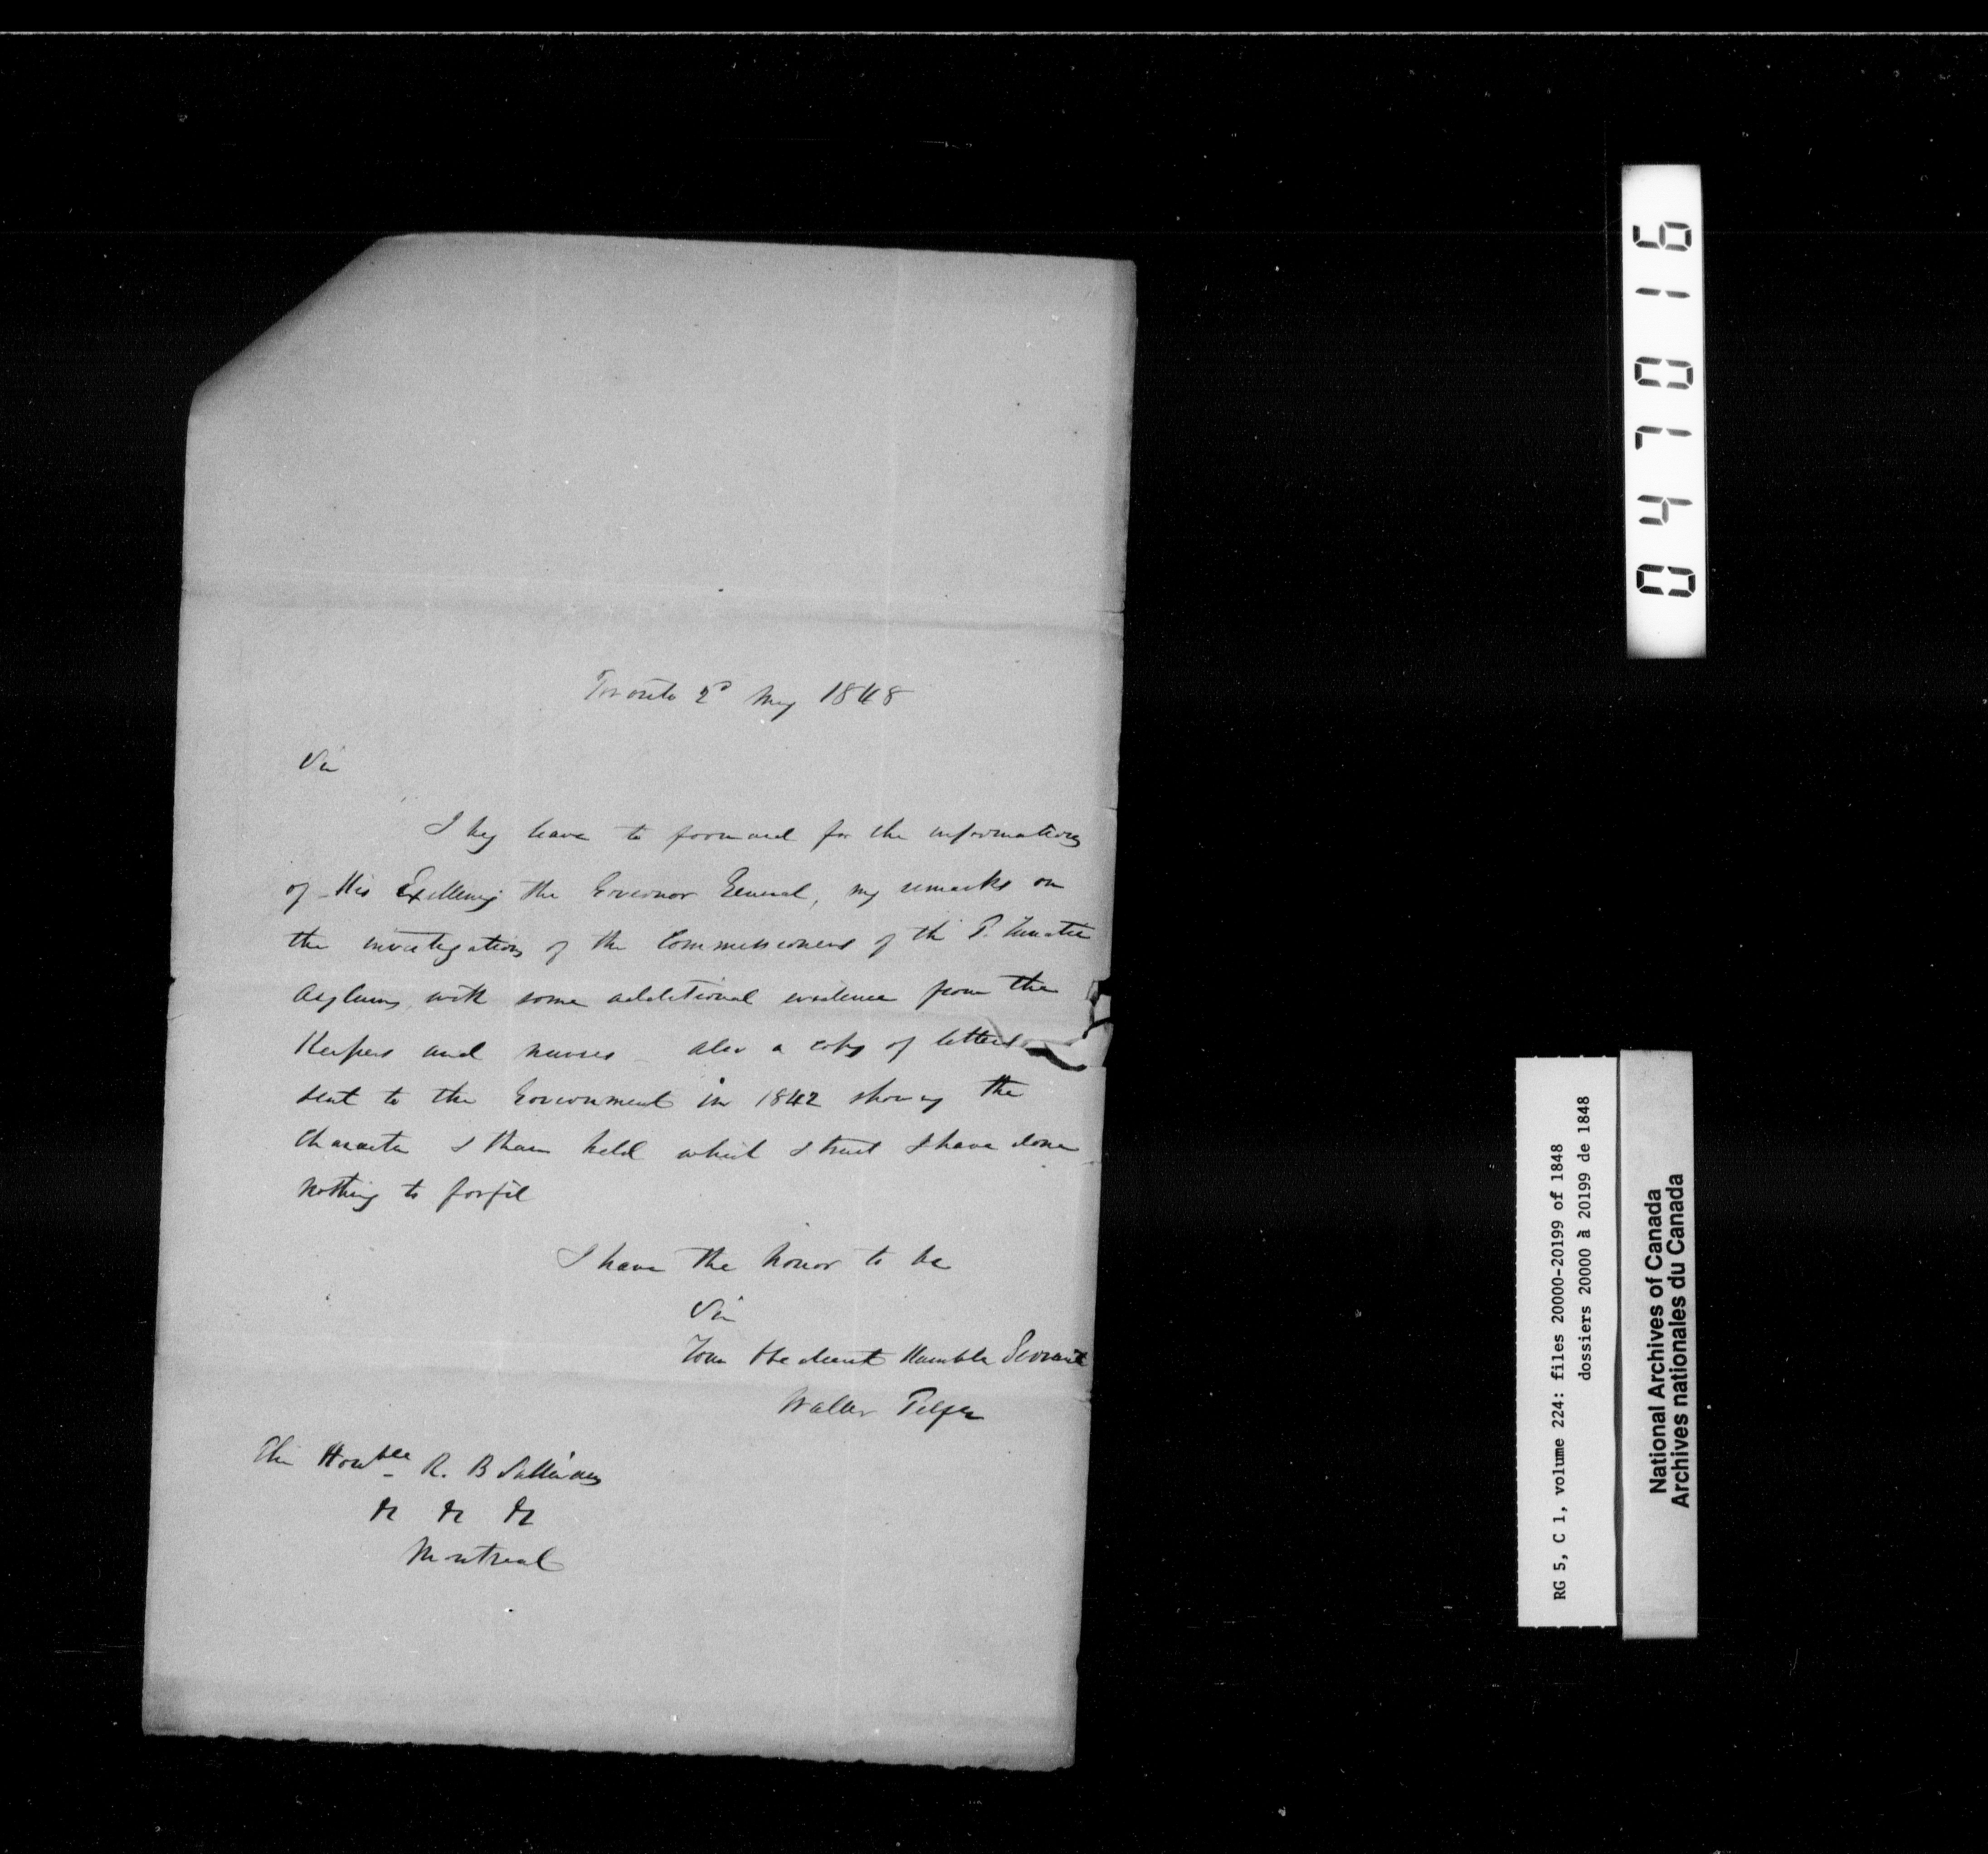 Toronto 2d May 1848
Sir
I beg leave to forward for the information
of His Excellency the Governor General, my remarks on
the investigation of the Commissioners of the P. Lunatic
Asylum, with some additional evidence from the
Keepers and nurses - also a copy of letters
sent to the Government in 1842 showing the
Character I then held which I trust I have done
nothing to forfit
I have the honor to be
Sir
Your Obedient Humble Servant
Walter Telfer
The Honble R. B Sullivan
&c &c &c
Montreal
047016
RG 5, C 1, volume 224: files 20000-20199 of 1848
dossiers 20000 à 20199 de 1848
National Archives of Canada
Archives nationales du Canada